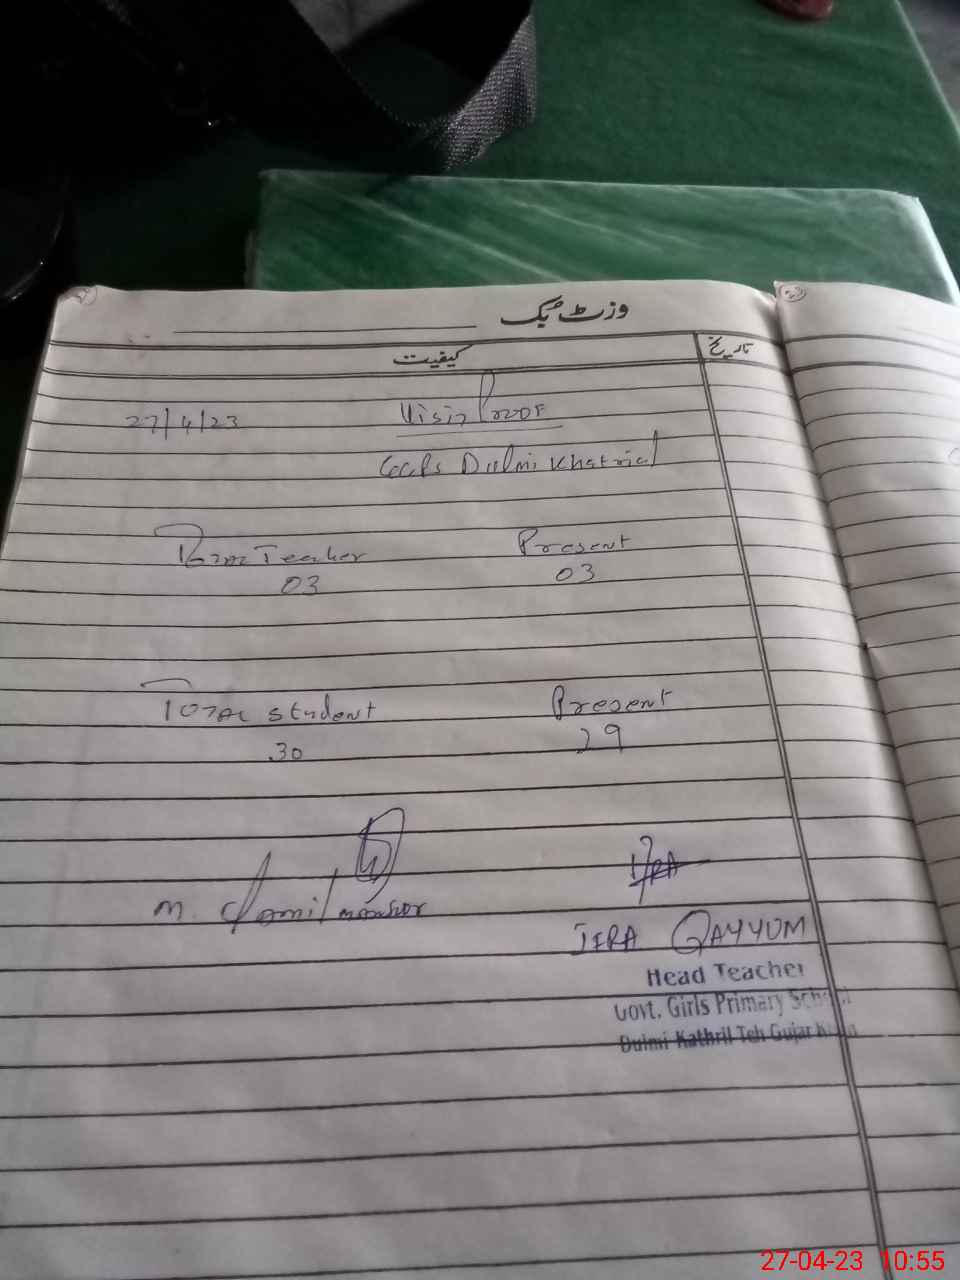 وزٹ بک
کیفیت تاریخ
27/4/23 Visit Proof
GGPS Dulmi Khatrial
Teacher Present
03 03
Total Student Present
30 29
M. Jamil
IFRA
IFRA QAYYUM
Head Teacher
Govt. Girls Primary School
Dulmi Kathril Teh Gujar Khan
27-04-23 10:55